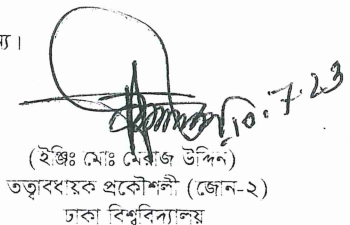 ্য।
১০.7.23
(ইঞ্জিঃ মোঃ মেরাজ উদ্দিন)
তত্ত্বাবধায়ক প্রকৌশলী (জোন-২)
ঢাকা বিশ্ববিদ্যালয়